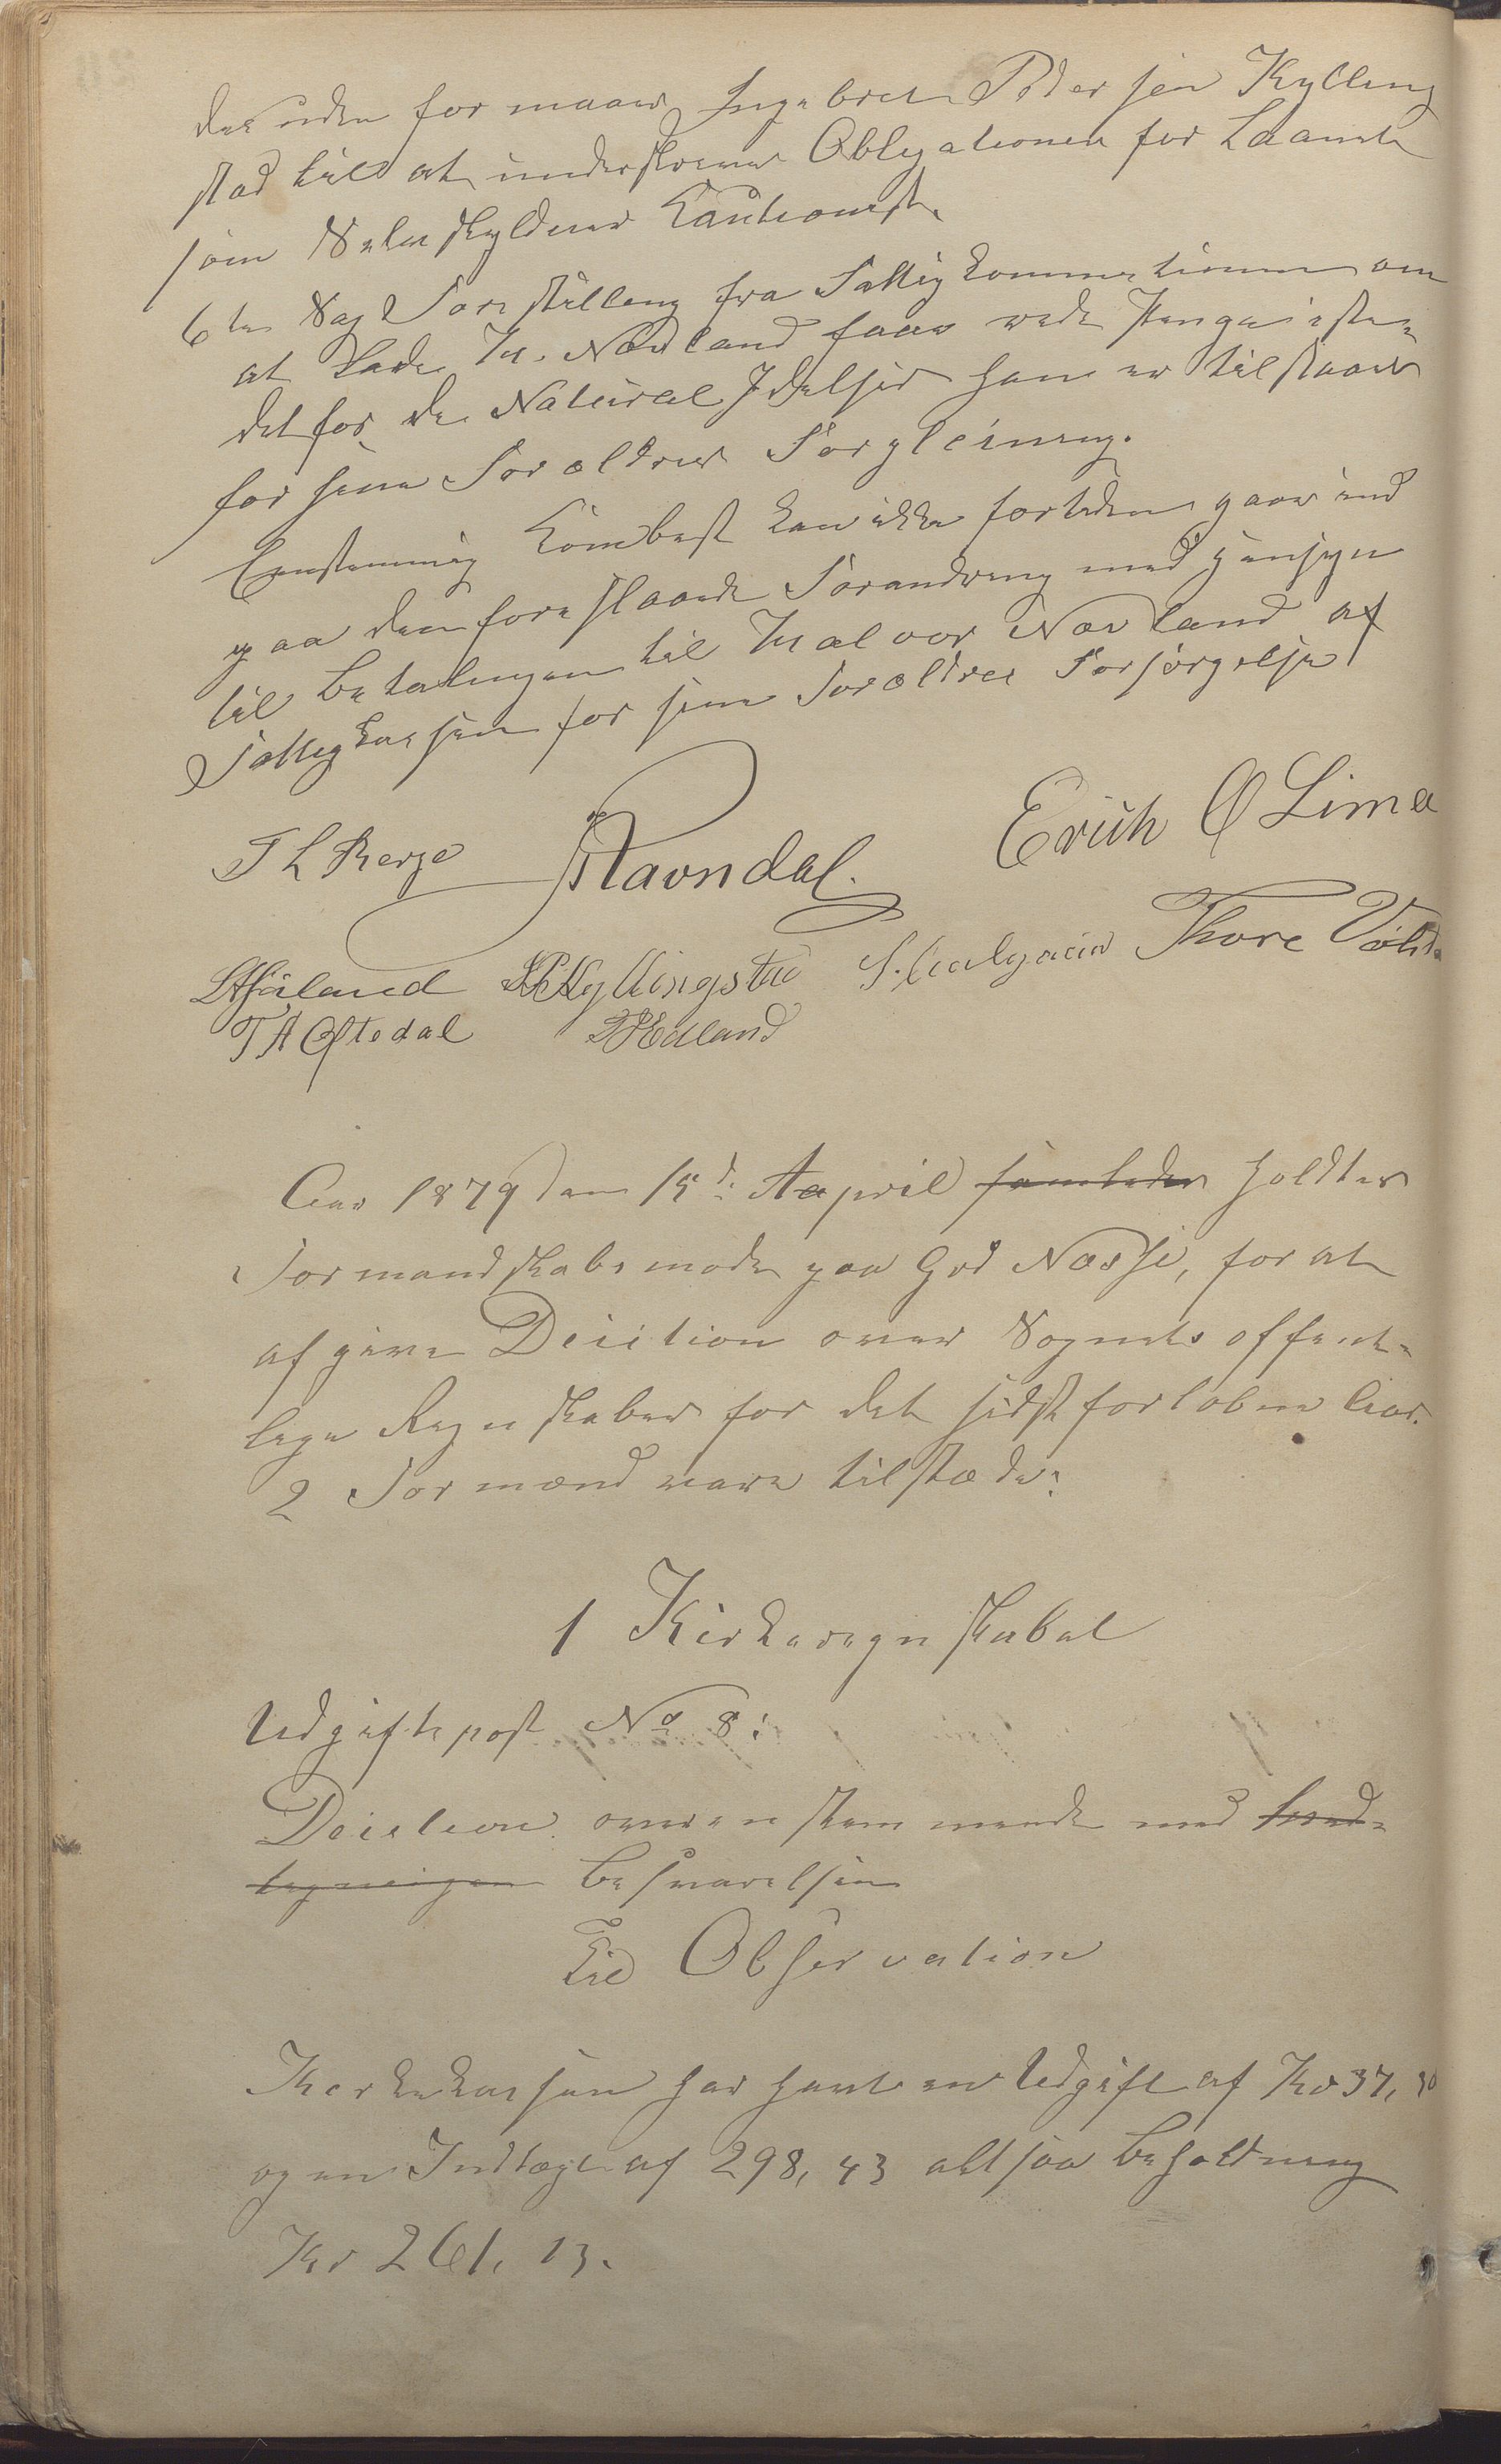 desuden formaaes Ingebret Pedersen Kylling
stad till at underskrive Obligationen for Laanet
som Selvskyldner Kautionist.
6te Sag Forestilling fra Fattigkommisionen om
at lade M. Nærland faae rede Penge iste-
det for de Natural Ydelser ham er tilstaaet
for sine Forældres Forpleining.
Eenstemmig Kombest kan ikke fortiden gaae ind
paa den foreslaaede Forandring med Hensyn
til Betalingen til Malvor Nærland af
Fattigkassen for sine Forældres Forsørgelse
T L Berge Ravndal. Erich O Lima
Håland Kyllingstad S. Aalgaard Thore
T A Oftedal Edland
Aar 1879 den 15de Aapril samledes holdtes
Formandskabsmøde paa Grd Næsse, for at
afgive Decition over Sognets offent-
lige Regnskaber for det sidst forløbne Aar.
2 Formænd vare tilstæde:
1 Kirkeregnskabet
Udgiftspost No 8:
Decition overensstemmende med
Besvarelsen
Til Observation
Kirkekassen har havt en Udgift af Kr 37, 30
og en Indtægt af 298, 43 altsaa Beholdning
Kr 261. 13.